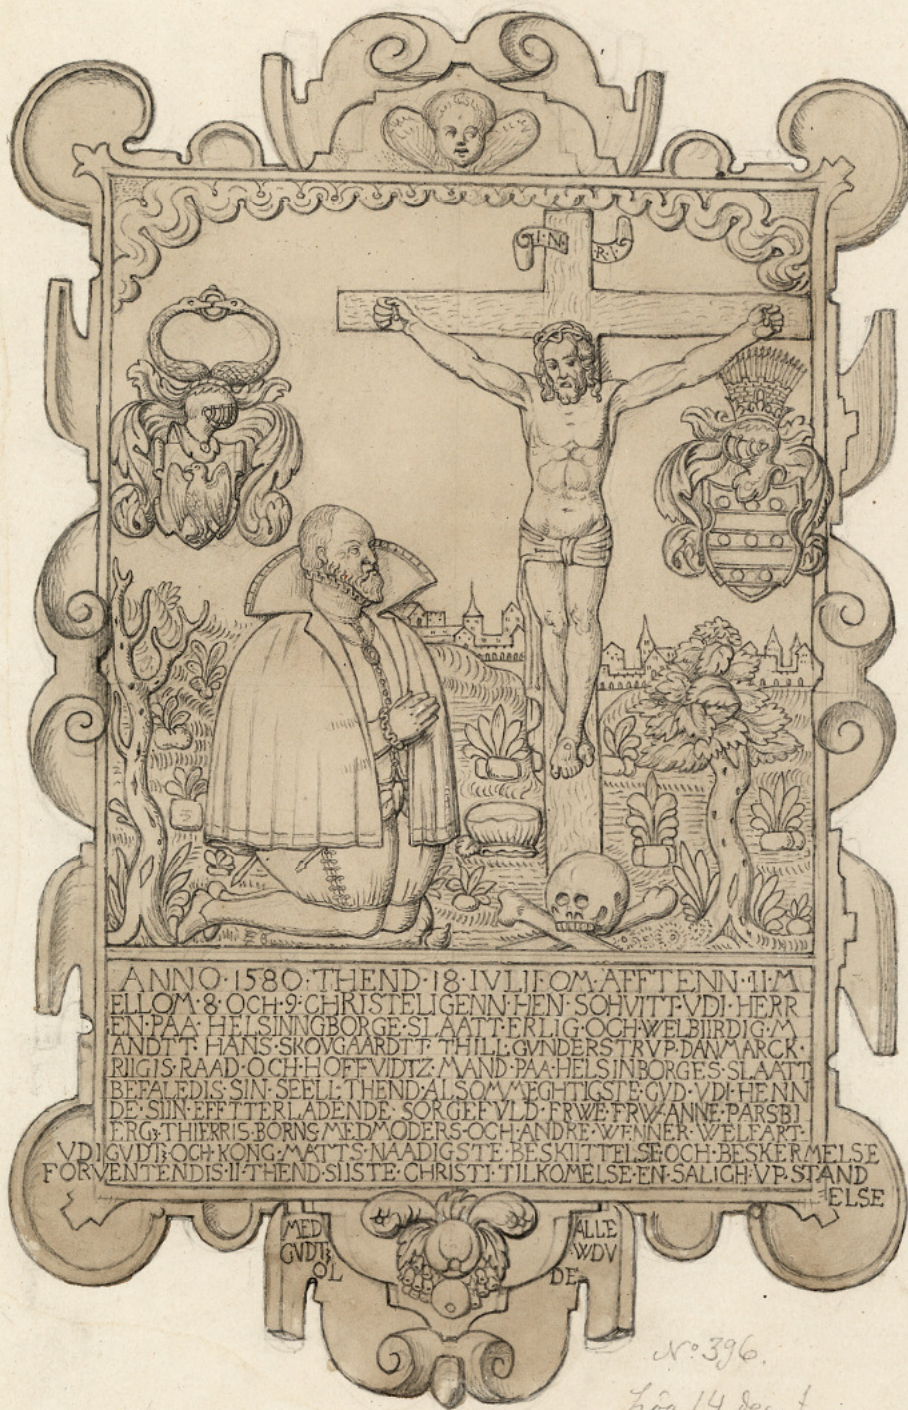 I·N·
R·I·
ANNO·1580·THEND·18·IVLII·OM·AFFTENN·II·M
ELLOM·8·OCH·9·CHRISTELIGENN·HEN·SOHVITT·VDI·HERR
EN·PAA·HELSINNGBORGE·SLAATT·ERLIG·OCH·WELBIIRDIG·M
ANDTT·HANS·SKOVGAARDTT·THILL·GVNDERSTRVP·DANMARCK·
RIIGIS·RAAD·OCH·HOFFVIDTZ·MAND·PAA·HELSINBORGES·SLAATT
BEFALEDIS·SIN·SEELL·THEND·ALSOMMEGHTIGSTE·GVD·VDI·HENN
DE·SIIN·EFFTTERLADENDE·SORGEFVLD·FRWE·FRW·ANNE·PARSBI
ERG·THIERRIS·BORNS·MEDMODERS·OCH·ANDRE·WENNER·WELFART·
VDI·GVDTZ·OCH·KONG·MATTS·NAADIGSTE·BESKIITTELSE·OCH·BESKERMELSE
FORVENTENDIS·II·THEND·SIISTE·CHRISTI·TILKOMELSE·EN·SALICH·VP·STAND
ELSE
MED ALLE
GVDTZ WDV
OL DE
No 396.